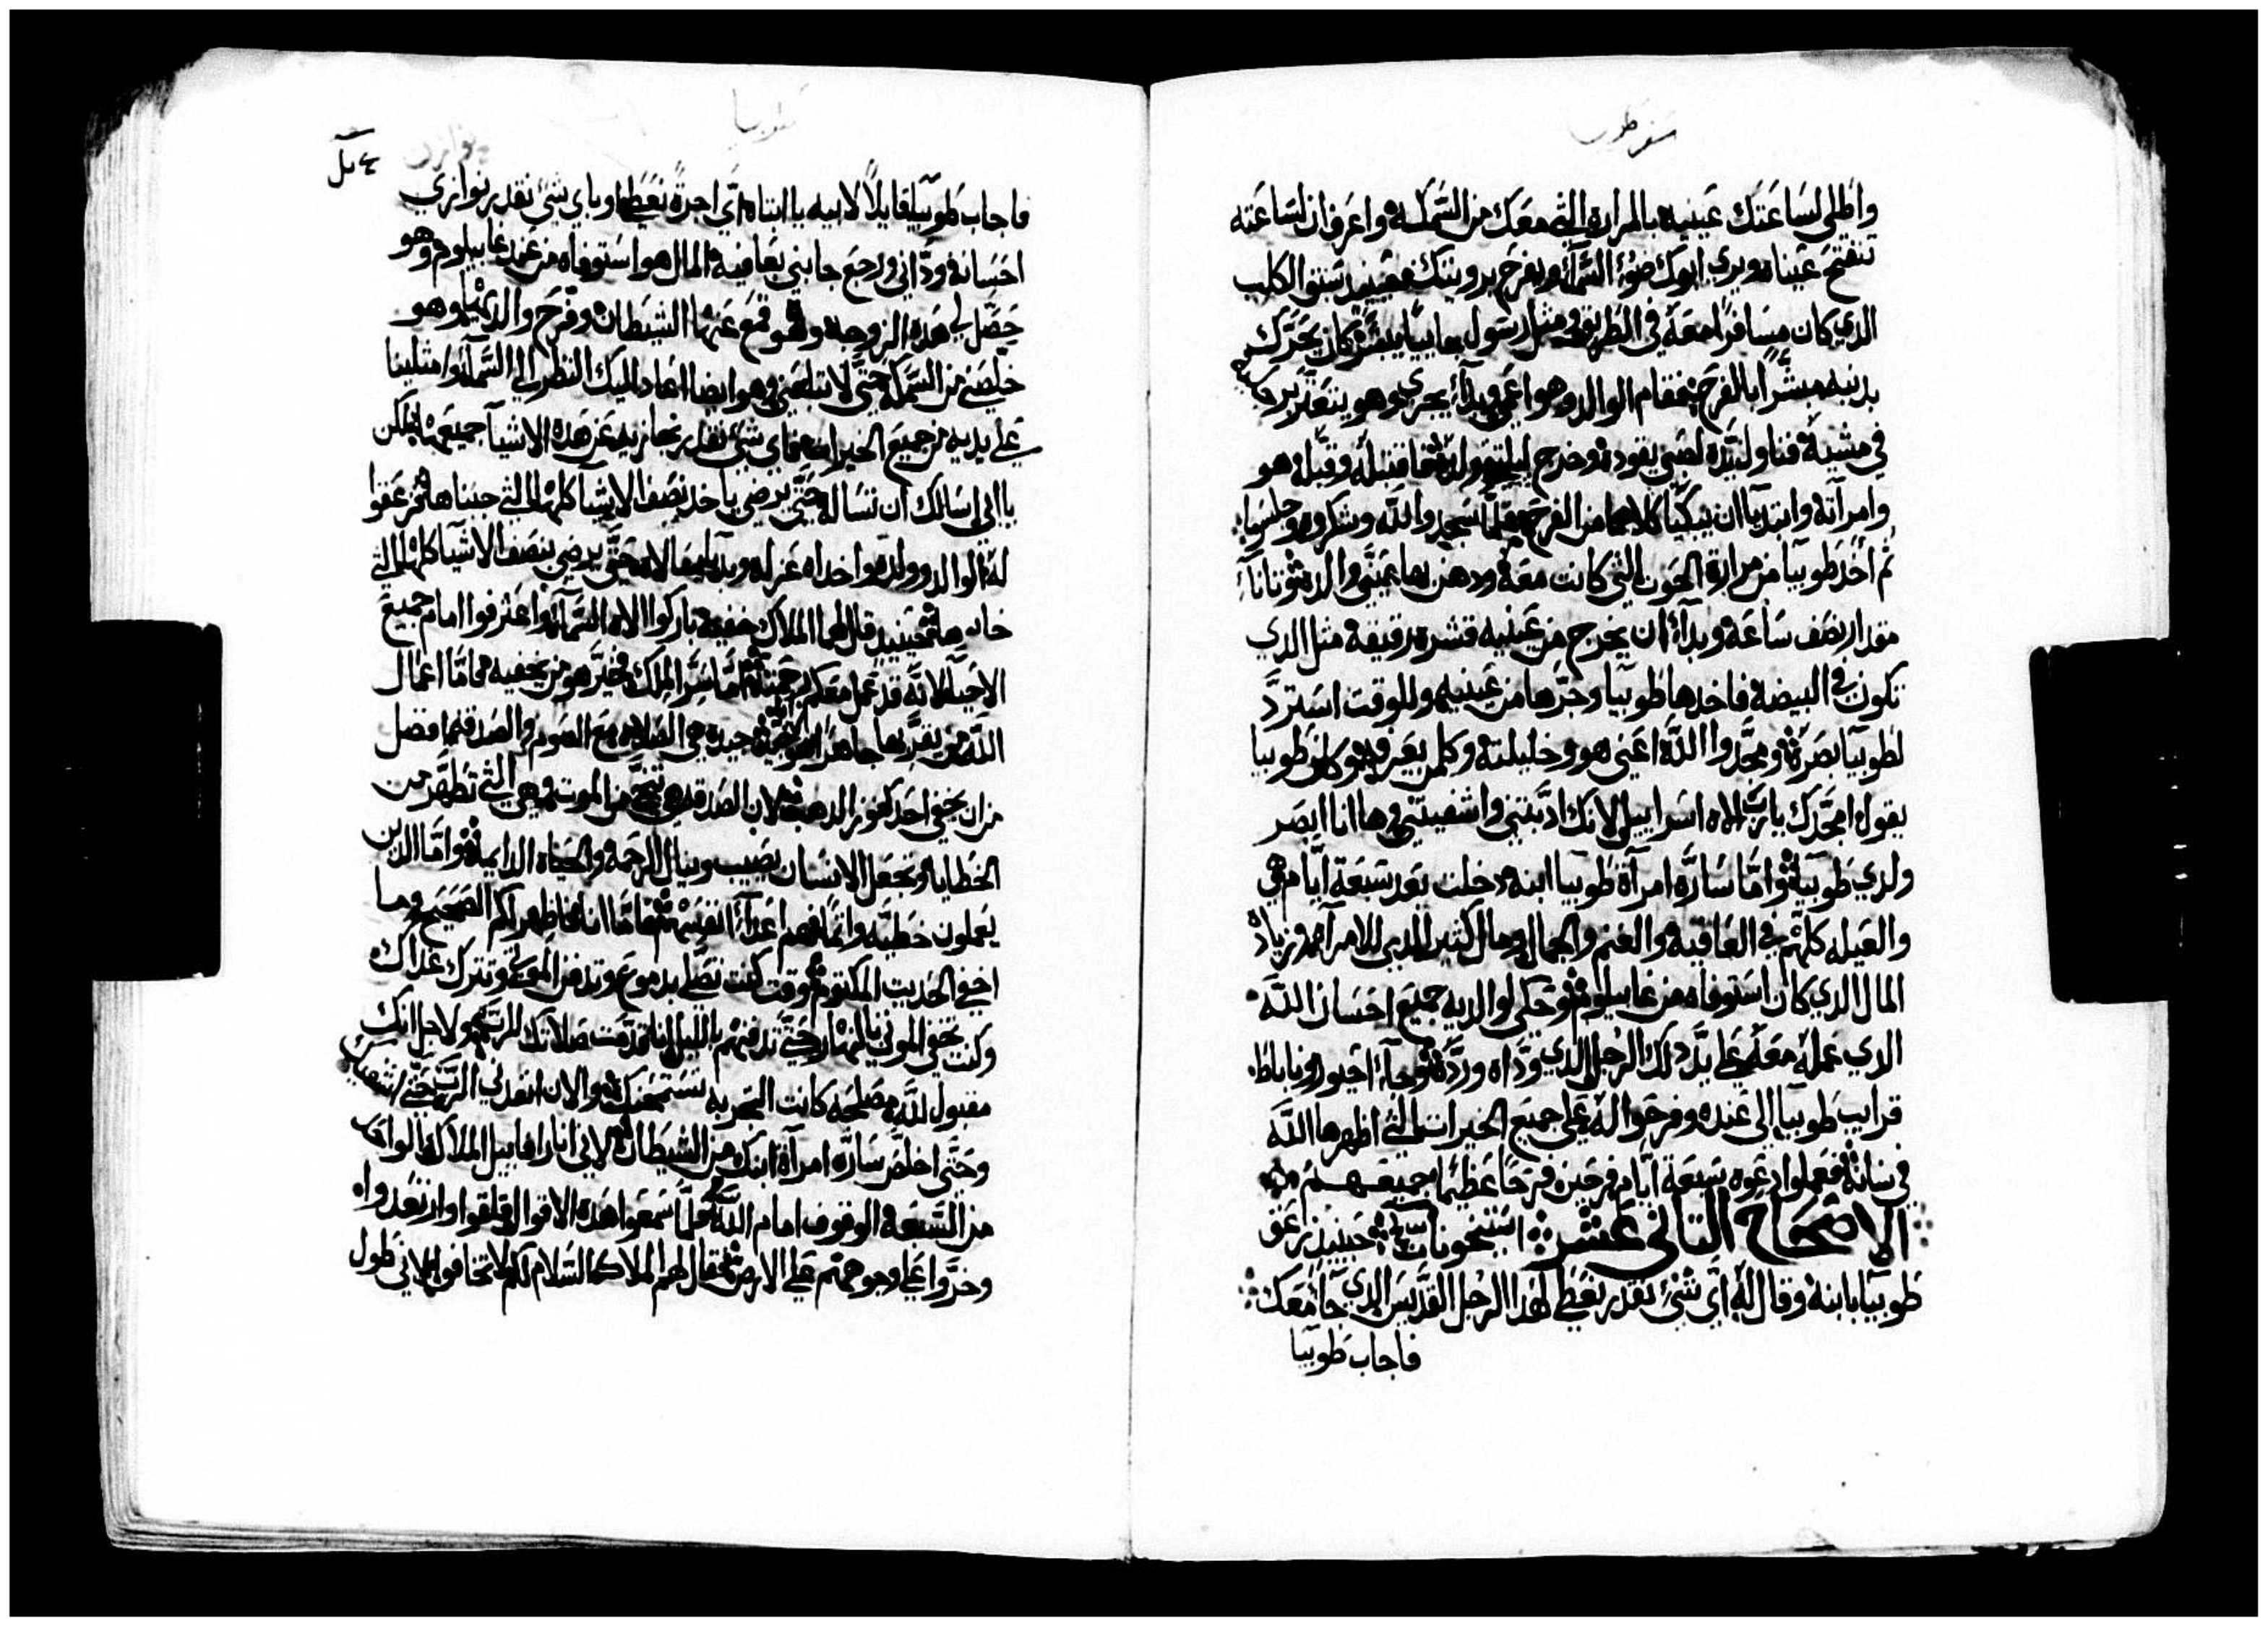 سفر طوبيا
واطلي لساعتك عينيه بالمرارة التي معك من السمكة واعرف ان لساعته
تنفتح عيناه ويرى ابوك ضوء السمآء ويفرح برويتك فحينيد سبق الكلب
الدي كان مسافرًا معه في الطريق ومثل رسول جاييًا يبشر كان يحرك
بدنبه مبشرًا بالفرح فقام الوالد وهو اعمى وبدآء يجري وهو يتعثر برجليه
في مشيه فناول يده لصبي يقوده وخرج ليلتقي ولده فاقتبله وقبله هو
وامرآته وابتديا ان يبكيا كلاهما من الفرح فلما سجدوا لله وشكروه وجلسوا
ثم اخد طوبيا من مرارة الحوت التي كانت معه ودهن بها عيني والده وتانآء
مقدار نصف ساعة وبدآء ان يخرج من عينيه قشره رقيقة مثل الدي
تكون في البيضة فاخدها طوبيا وجرها من عينيه وللوقت استرد
لطوبيا بصره ومجدوا الله اعني هو وخليلته وكلمن يعرفه وكان طوبيا
يقول امجدك يارب الاه اسراييل لانك ادبتني واشفيتني وها انا ابصر
ولدي طوبيا واما ساره امرآة طوبيا ابنه دخلت بعد سبعة ايام هي
والعيله كلهم في العافيه والغنم والجمال ومال كتير الدي للامرآه وزياده
المال الدي كان استوفاه من غابيلوم وحكى لوالديه جميع احسان الله
الدي عمله معه على يد دلك الرجل الدي وداه ورده وجآء اخيور وناباط
قرايب طوبيا الى عنده وفرحوا له على جميع الخيرات التي اظهرها الله
في سانه فعملوا دعوه سبعة ايام فرحين فرحًا عظيمًا جميعهم
الاصحاح التاني عشر استيخونات حينيد زعق
طوبيا بابنه وقال له اي شيء نقدر نعطي لهدا الرجل القديس الدي جآء معك
فاجاب طوبيا
طوبيا
فاجاب طوبيا قايلاً لابيه يا ابتاه اي اجرة نعطيه او باي شي نقدر نوازي
احسانه وداني ورجع جابني بعافيه المال هو استوفاه من عند غابيلوم وهو
حصل لي هده الزوجه وهو قمع عنها الشيطان وفرح والديها وهو
خلصني من السمكه حتى لا تبلعني وهو ايضا اعاد اليك النظر الى السمآء وامتلينا
على يديه من جميع الخيرات فماي شي نقدر نجازيه عن هده الاشيآء جميعها لكن
يا ابي اسالك ان تساله حتى يرضى ياخد نصف الاشيا كلها التي جبناها فزعقوا
له الوالد وولده واخداه عزله وبديا يسالاه حتى يرضى بنصف الاشيا كلها التي
جابوها فحينيد قال لهما الملاك خفية باركوا الاه السمآء واعترفوا امام جميع
الاحيآء لانه قد عمل معكم رحمته اما سر الملك فخير هو من يخفيه واما اعمال
الله من يقر بها جاهرًا جيده هي الصلاه مع الصوم والصدقه افضل
من ان يخفي احد كنوز الدهب لان الصدقه هي تنجي من الموت وهي التي تطهر من
الخطايا وتجعل الانسان يصيب وينال الرحمه والحياه الدايمه واما الدين
يعملون خطيه واتمًا فهم اعدآء انفسهم فاما انا فاظهر لكم الصحيح وما
اخفي الحديت المكتوم وقت كنت تصلي بدموع وتدفن الموتى وتترك غداك
وكنت تخفي الموتى بالنهار حتى تدفنهم بالليل انا قدمت صلاتك للرب ولاجل انك
مقبول لله مصلحه كانت التجربه تستمحنك والان انفدني الرب حتى اشفيك
وحتى اخلص ساره امرآة ابنك من الشيطان لاني انا رافاييل الملاك الواحد
من السبعه الوقوف امام الله فلما سمعوا هده الاقوال قلقوا وارتعدوا
وخروا على وجوههم على الارض فقال لهم الملاك السلام لكم لا تخافوا لاني طول